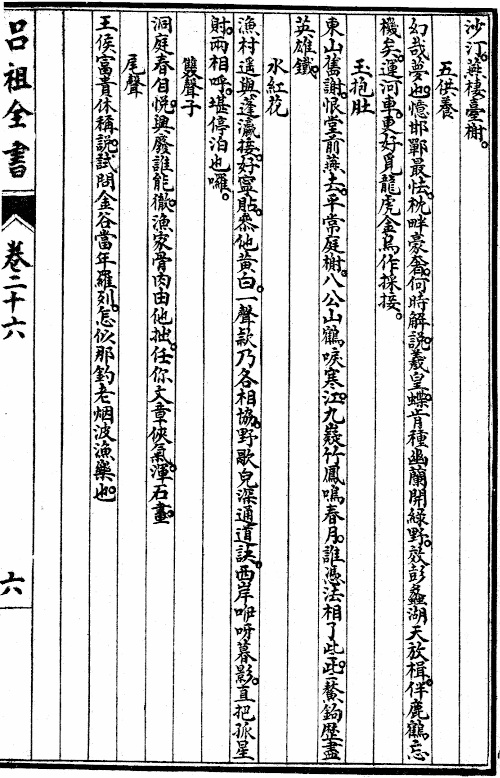 沙汀蘋棲臺榭。
五供養
幻哉夢也。憶邯鄲最怯。枕畔豪奢。何時解說。羲皇蝶。肯種幽蘭開綠野。效彭蠡湖天放楫。伴鹿鶴忘
機矣。運河車。更好覓龍虎金烏作採接。
玉抱肚
東山舊謝。恨堂前燕去。平常庭榭。八公山鶴唳寒江。九嶷竹鳳鳴春月。誰憑法相了此。一鰲鉤歷盡
英雄鐵。
水紅花
漁村遙與蓬瀛接。好寧貼。叅他黃白。一聲欵乃各相協。野歌兒深通道訣。西岸咿呀暮影。直把孤星
射。兩相呼。堪停泊也囉。
雙聲子
洞庭春自悅。興廢誰能徹。漁家骨肉由他拙。任你文章俠氣。渾石畫。
尾聲
王侯富貴休稱說。試問金谷當年羅列。怎似那釣老烟波漁樂也。
呂祖全書 卷二十六 六